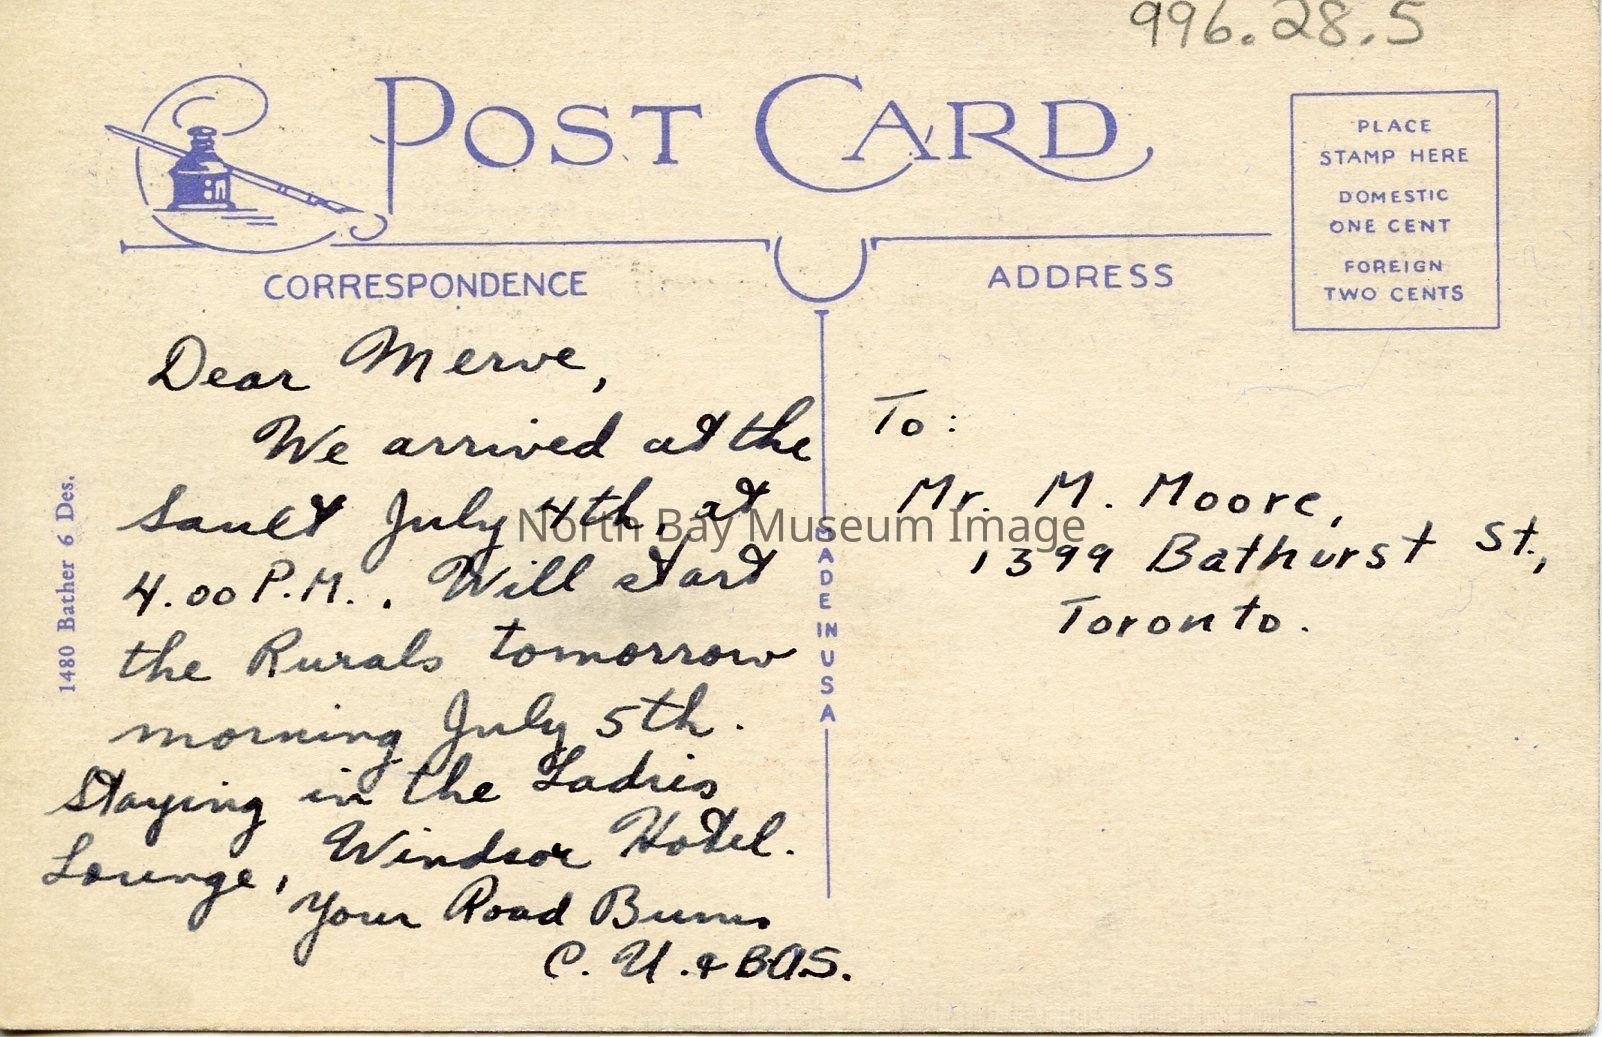 996.28.5
POST CARD
PLACE
STAMP HERE
DOMESTIC
ONE CENT
FOREIGN
TWO CENTS
CORRESPONDENCE
ADDRESS
Dear Merve,
We arrived at the
Sault July 4th, at
4.00 P.M.. Will start
the Rurals tomorrow
morning July 5th.
Staying in the Ladies
Lounge, Windsor Hotel.
Your Road Bums
C. U. & BAS.
To:
Mr. M. Moore,
1399 Bathurst St.,
Toronto.
1480 Bather 6 Des.
MADE IN USA
North Bay Museum Image